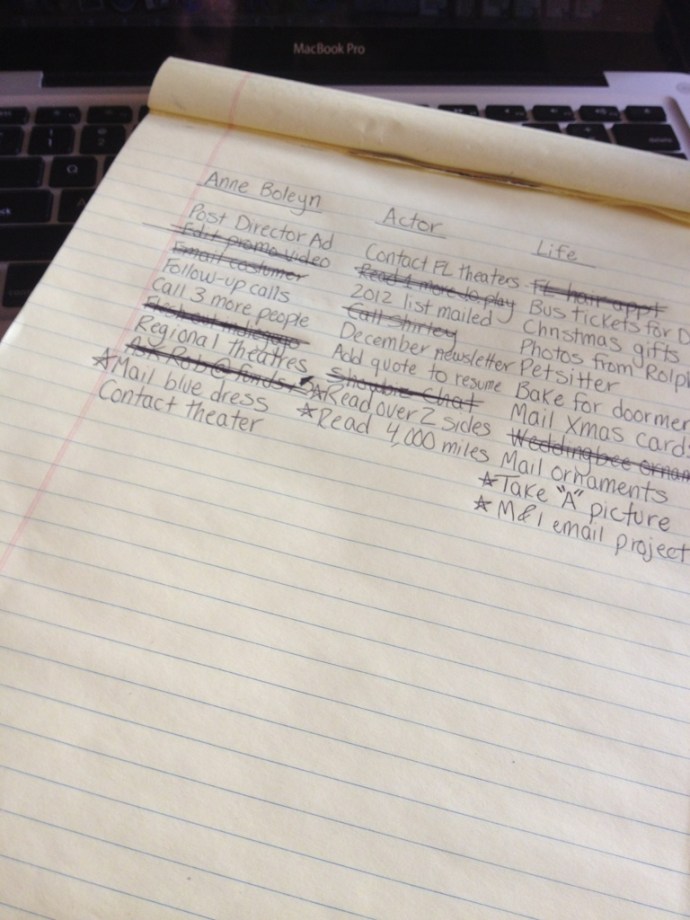 MacBook Pro
Anne Boleyn
Post Director Ad
Edit promo video
Email costumer
Follow-up calls
Call 3 more people
Regional theatres
Ask Rob @ funds
☆Mail blue dress
Contact theater
Actor
Contact FL theaters
Read 1 more 10 play
2012 list mailed
Call Shirley
December newsletter
Add quote to resume
Chat
☆Read over 2 sides
☆Read 4,000 miles
Life
FL hair appt
Bus tickets for D
Christmas gifts
Photos from Rolp
Petsitter
Bake for doormen
Mail Xmas card
Weddingbee ornam
Mail ornaments
☆Take "A" picture
☆M&I email project